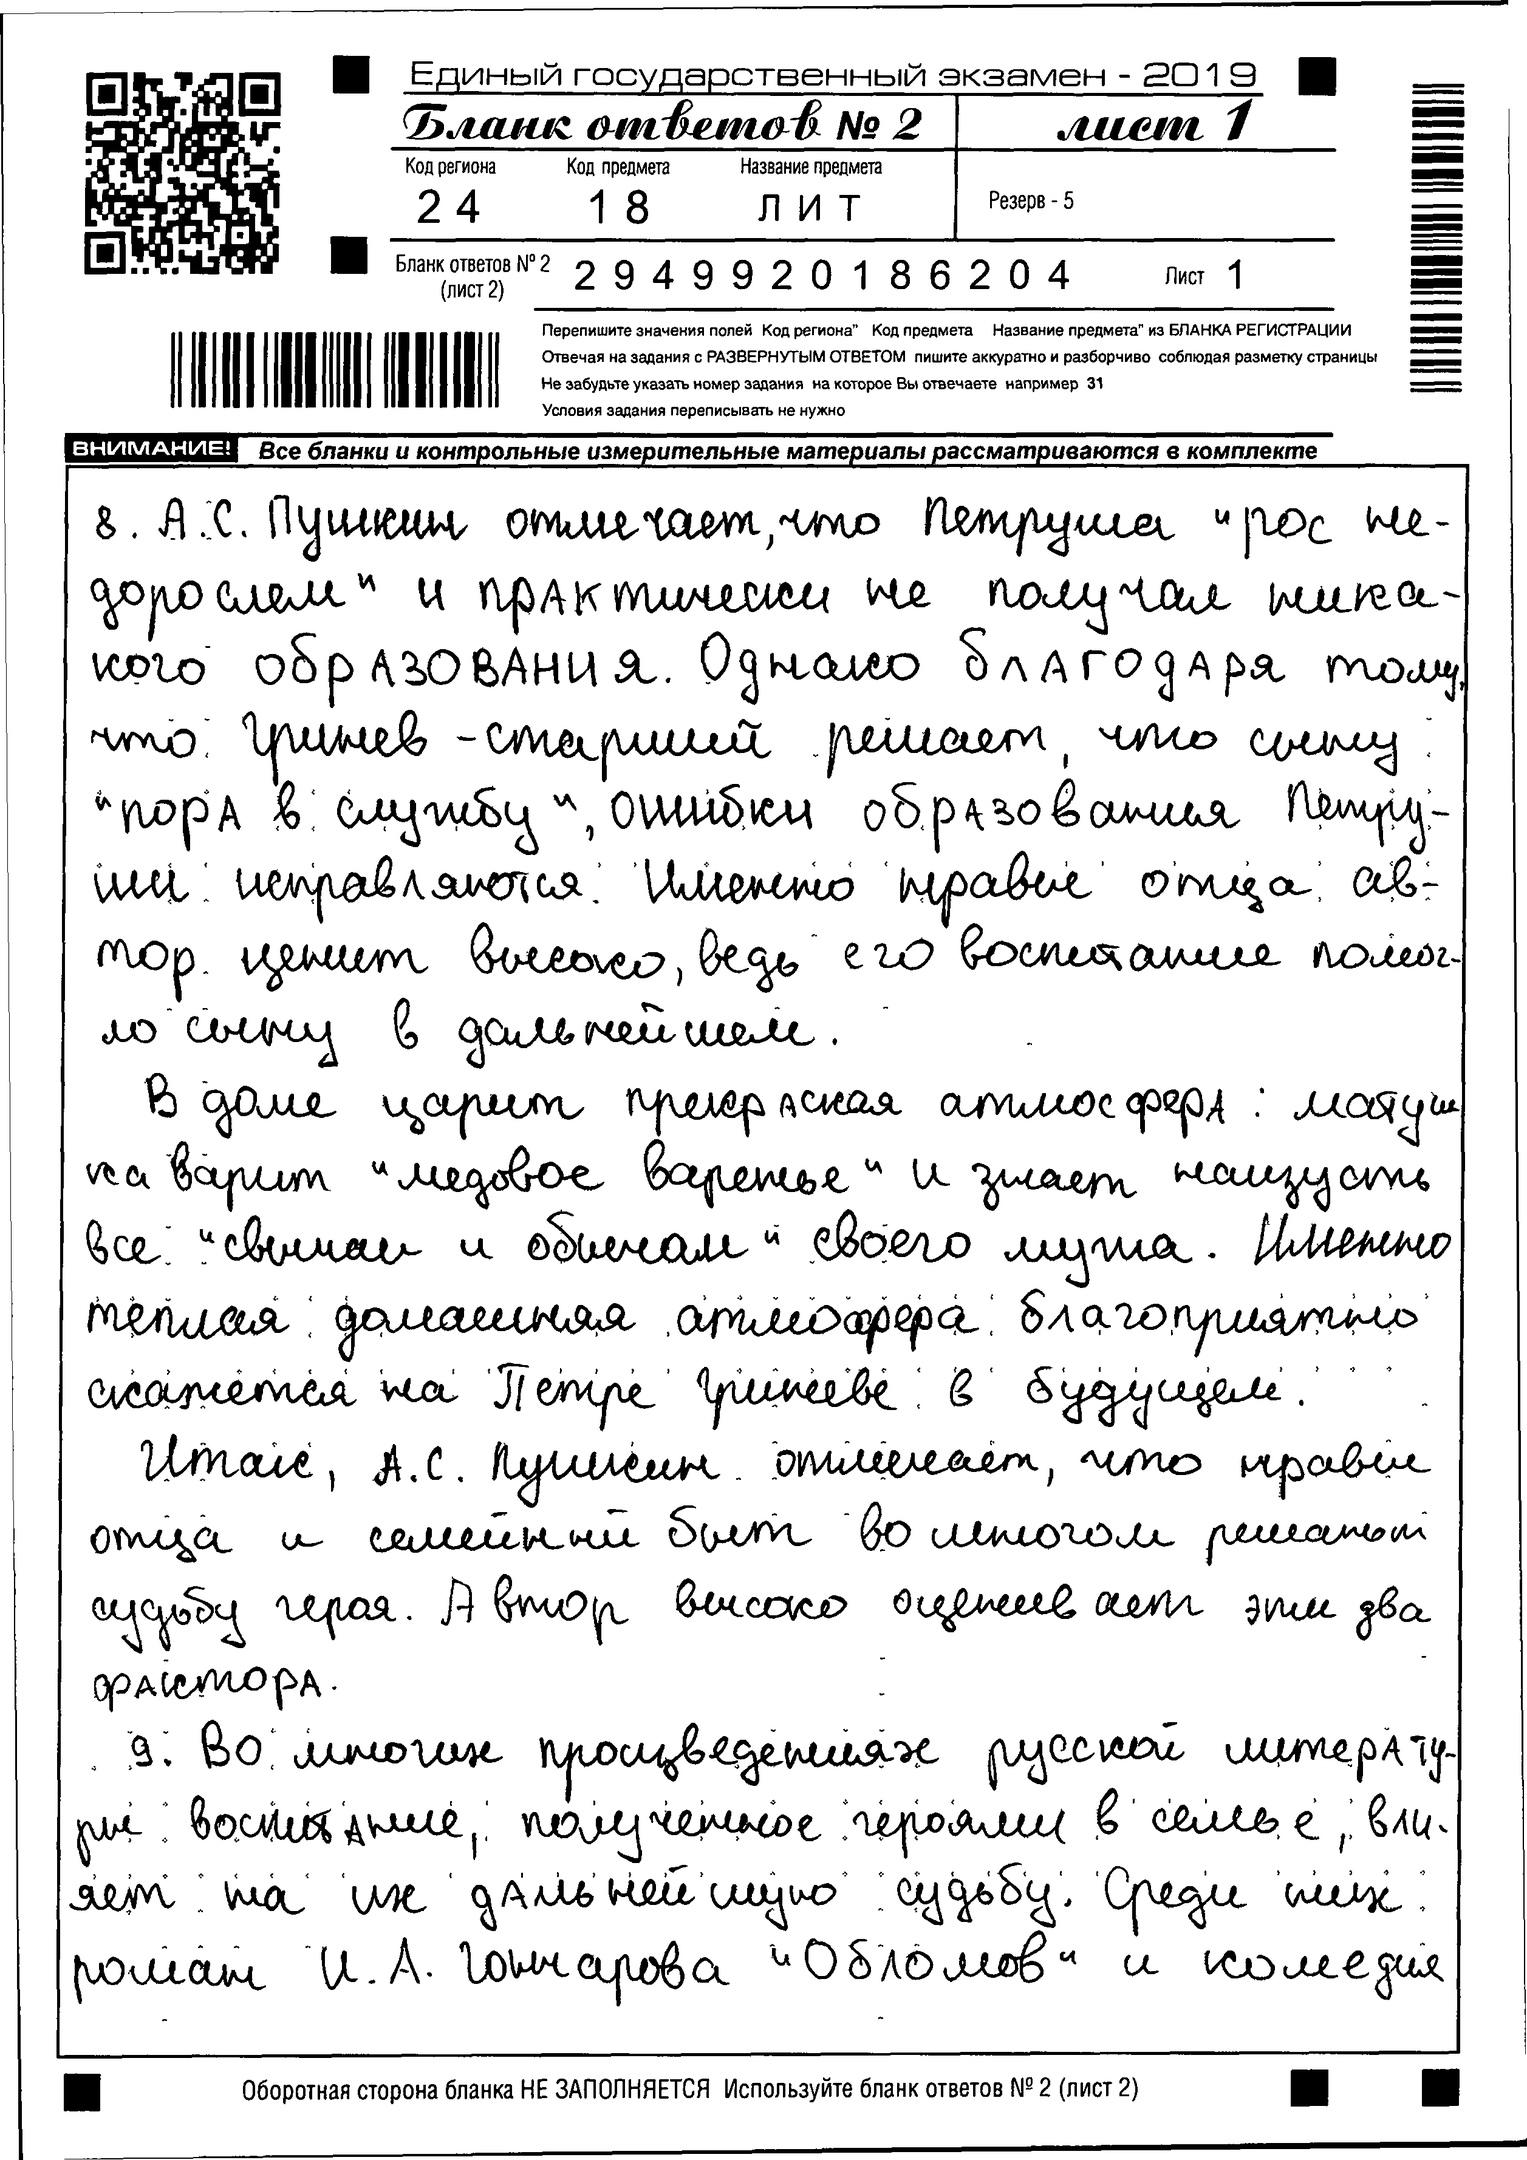 Единый государственный экзамен - 2019
Бланк ответов № 2 лист 1
Код региона Код предмета Название предмета
24 18 ЛИТ Резерв - 5
Бланк ответов № 2 (лист 2) 2949920186204 Лист 1
Перепишите значения полей Код региона" Код предмета Название предмета" из БЛАНКА РЕГИСТРАЦИИ
Отвечая на задания с РАЗВЕРНУТЫМ ОТВЕТОМ пишите аккуратно и разборчиво соблюдая разметку страницы
Не забудьте указать номер задания на которое Вы отвечаете например 31
Условия задания переписывать не нужно
ВНИМАНИЕ! Все бланки и контрольные измерительные материалы рассматриваются в комплекте
8. А.С. Пушкин отмечает, что Петруша "рос не-
дорослем" и практически не получал ника-
кого образования. Однако благодаря тому,
что Гринев-старший решает, что сыну
"пора в службу", ошибки образования Петру-
ши исправляются. Именно нравы отца ав-
тор ценит высоко, ведь его воспитание помог-
ло сыну в дальнейшем.
В доме царит прекраская атмосфера: матуш
ка варит "медовое варенье" и знает наизусть
все "свычаи и обычаи" своего мужа. Именно
теплая домашняя атмосфера благоприятно
скажется на Петре Гриневе в будущем.
Итак, А.С. Пушкин отмечает, что нравы
отца и семейный быт во многом решают
судьбу героя. Автор высоко оценивает эти два
фактора.
9. Во многих произведениях русской литерату-
ры воспитание, полученное героями в семье, вли-
яет на их дальнейшую судьбу. Среди них
роман И.А. Гончарова "Обломов" и комедия
Оборотная сторона бланка НЕ ЗАПОЛНЯЕТСЯ Используйте бланк ответов № 2 (лист 2)